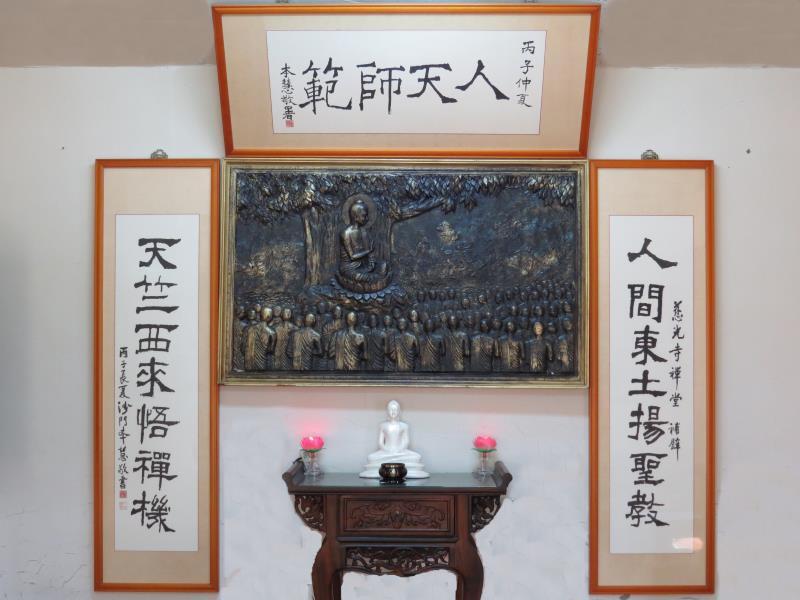 丙子仲夏
人天師範
本慧敬署
慈光寺禪堂 補壁
人間東土揚聖教
天竺西來悟禪機
丙子長夏沙門本慧敬書